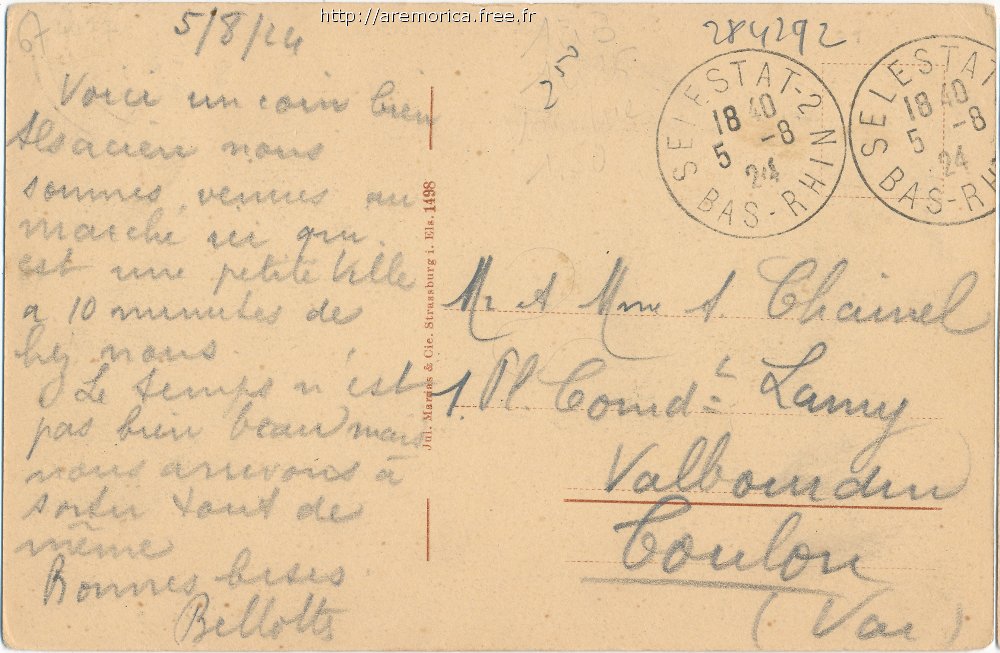 http://aremorica.free.fr
5/8/24
Voici un coin bien
Alsacien nous
sommes venues au
marche ici qui
est une petite Ville
a 10 minutes de
chez nous.
Le temps n'est
pas bien beau mais
nous arrivons à
sortir tout de
même
Bonnes bises.
Bellotte
Jul. Manias & Cie. Strassburg i. Els. 1498
250
284292
SELESTAT-2
18 40
5 -8
24
BAS-RHIN
SELESTAT
18 40
5 -8
24
BAS-RHIN
Mr & Mme A. Chainel
1. Pl. Comdt Lamy
Valbourdin
Toulon
(Var)